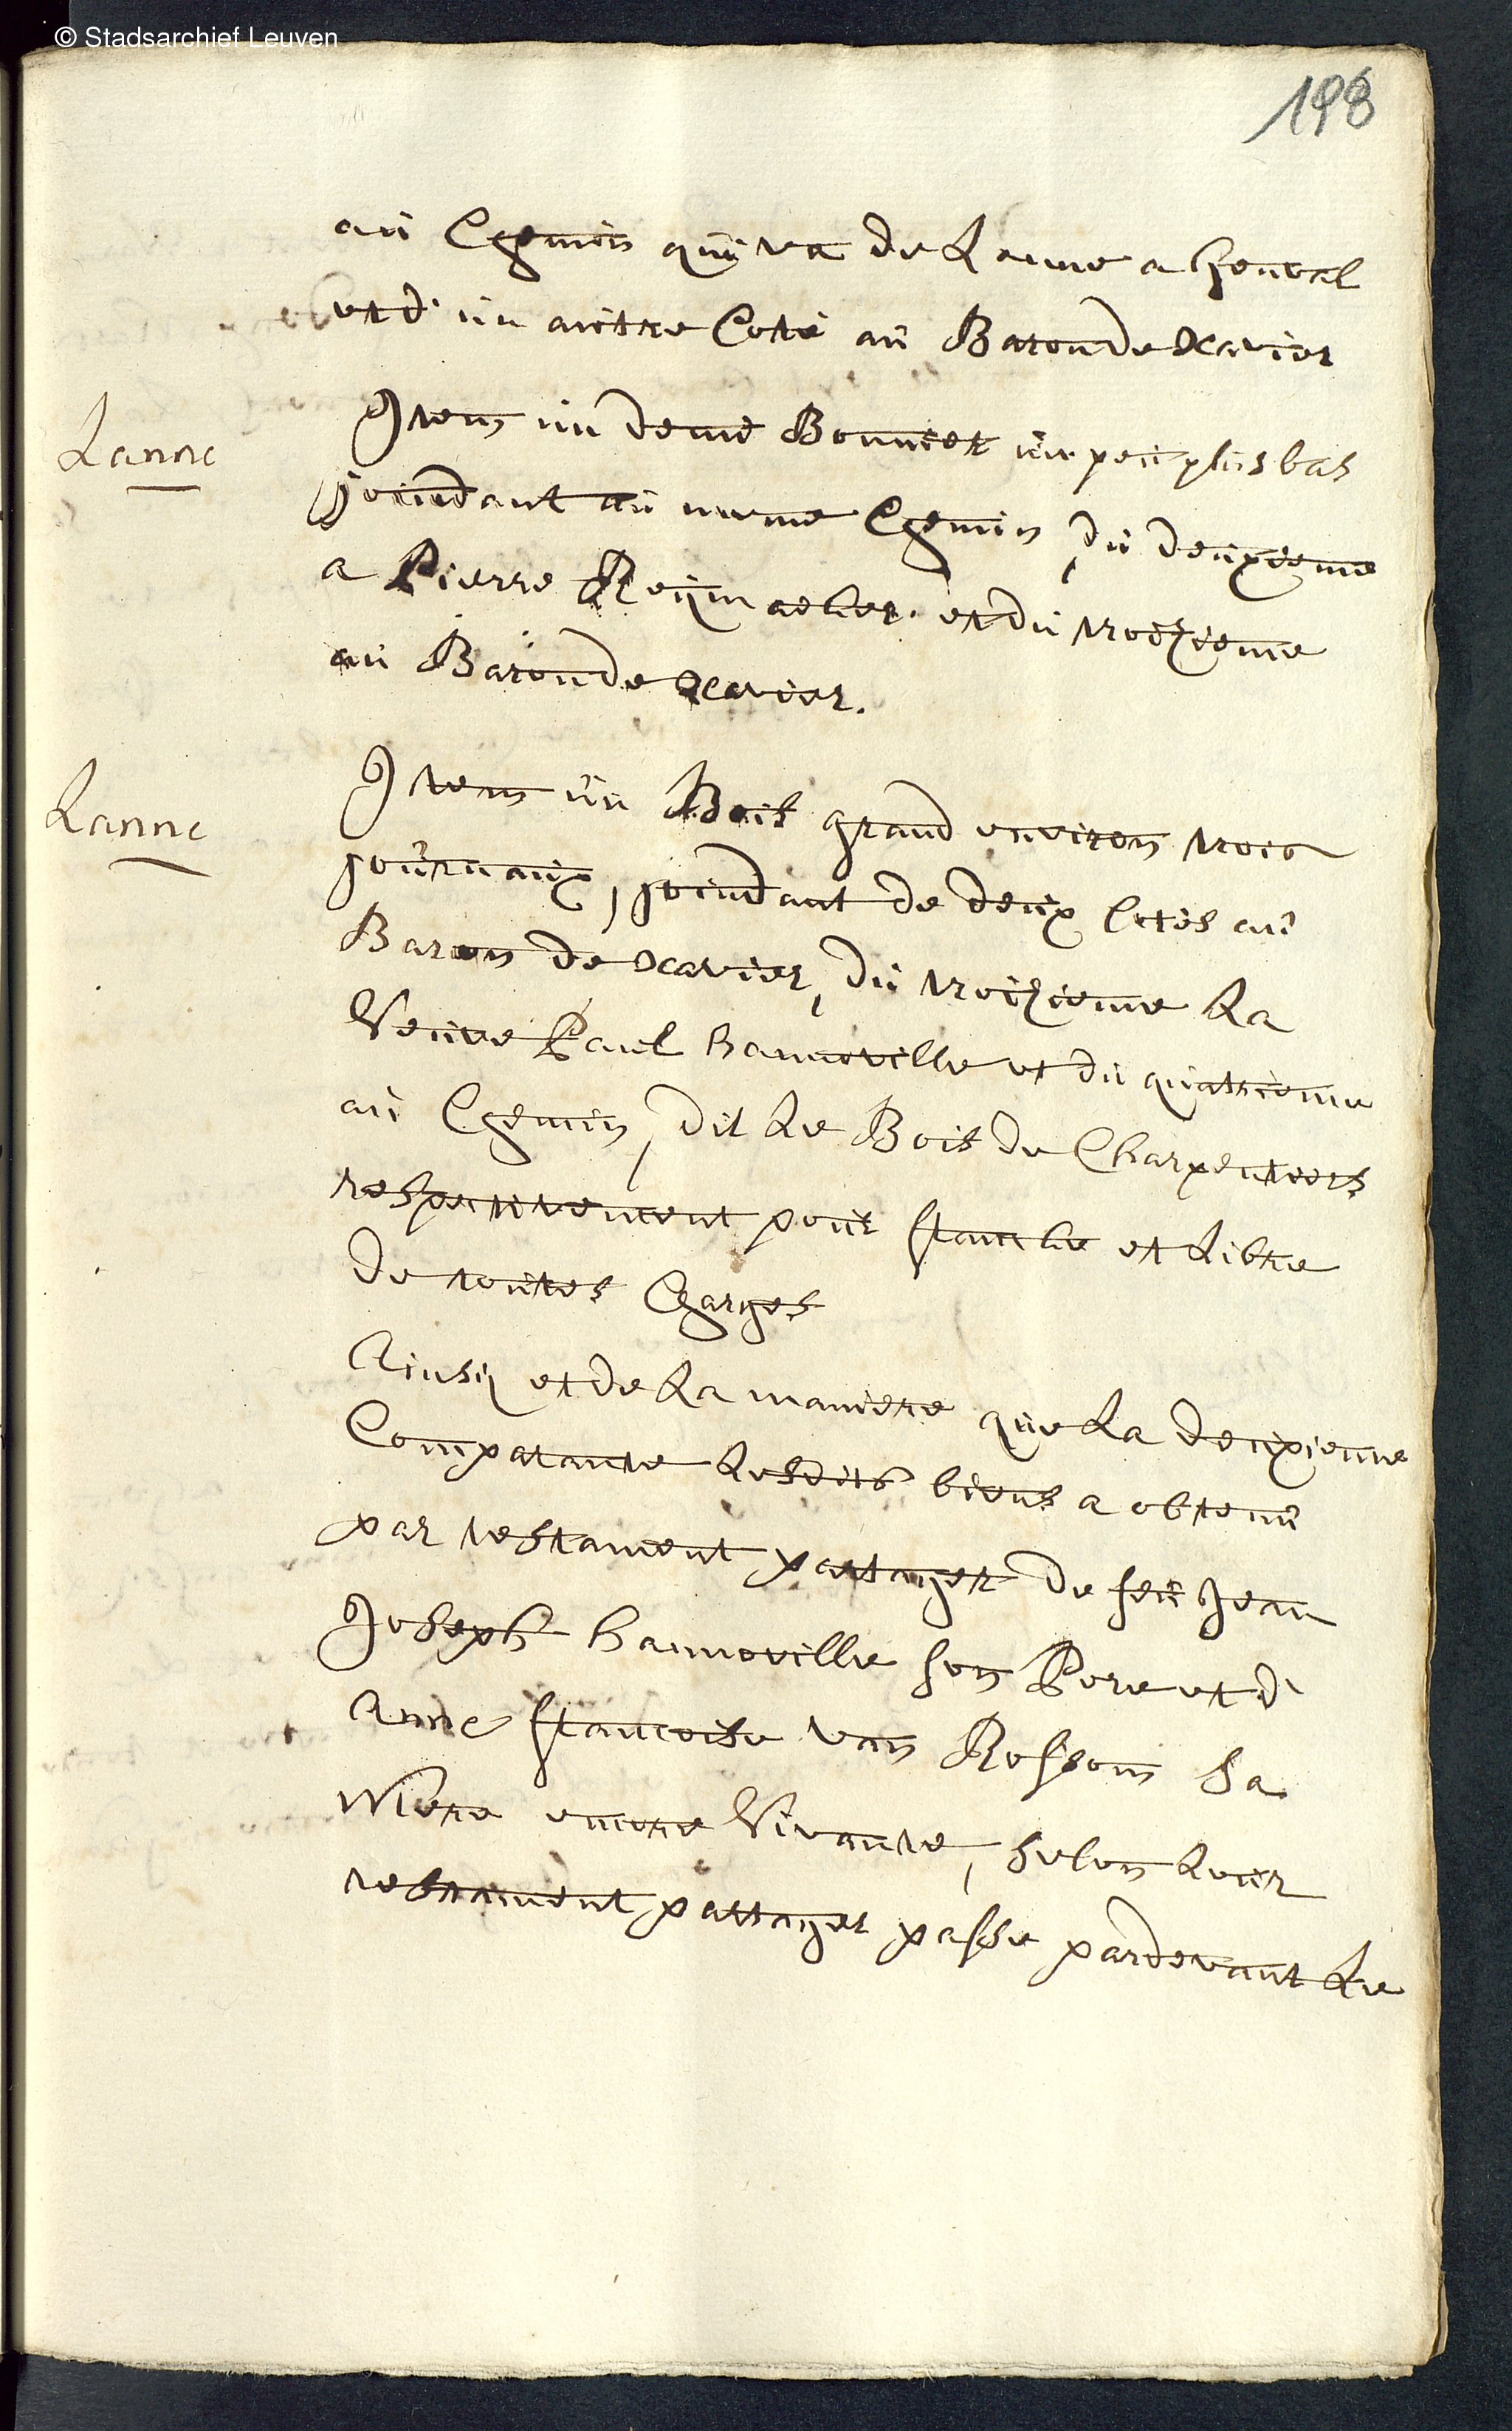 © Stadsarchief Leuven
198
au Chemin qui va de Lanne a Genval
et d'un autre Coté au Baron de Xavier
Lanne
Item un demi Bonnier un peu plus bas
joindant au meme Chemin, du deuxieme
a Pierre Reijmaeker. et du troizieme
au Baron de Xavier.
Lanne
Item un Bois grand environ trois
journaux, joindant de deux Cotés au
Baron de Xavier, du troizieme La
Veuve Paul hannoville et du quatrieme
au Chemin, dit Le Bois de Charpentiers
respectivement pour franche et Libre
de toutes Charges
Ainsij et de La maniere que La deuxieme
Comparante Lesdits biens a obtenu
par testament partager de feu Jean
Joseph hannoville son Pere et d'
Anne francoise van Rossom sa
Mere encore Vivante, selon Leur
testament partager passe pardevant Le